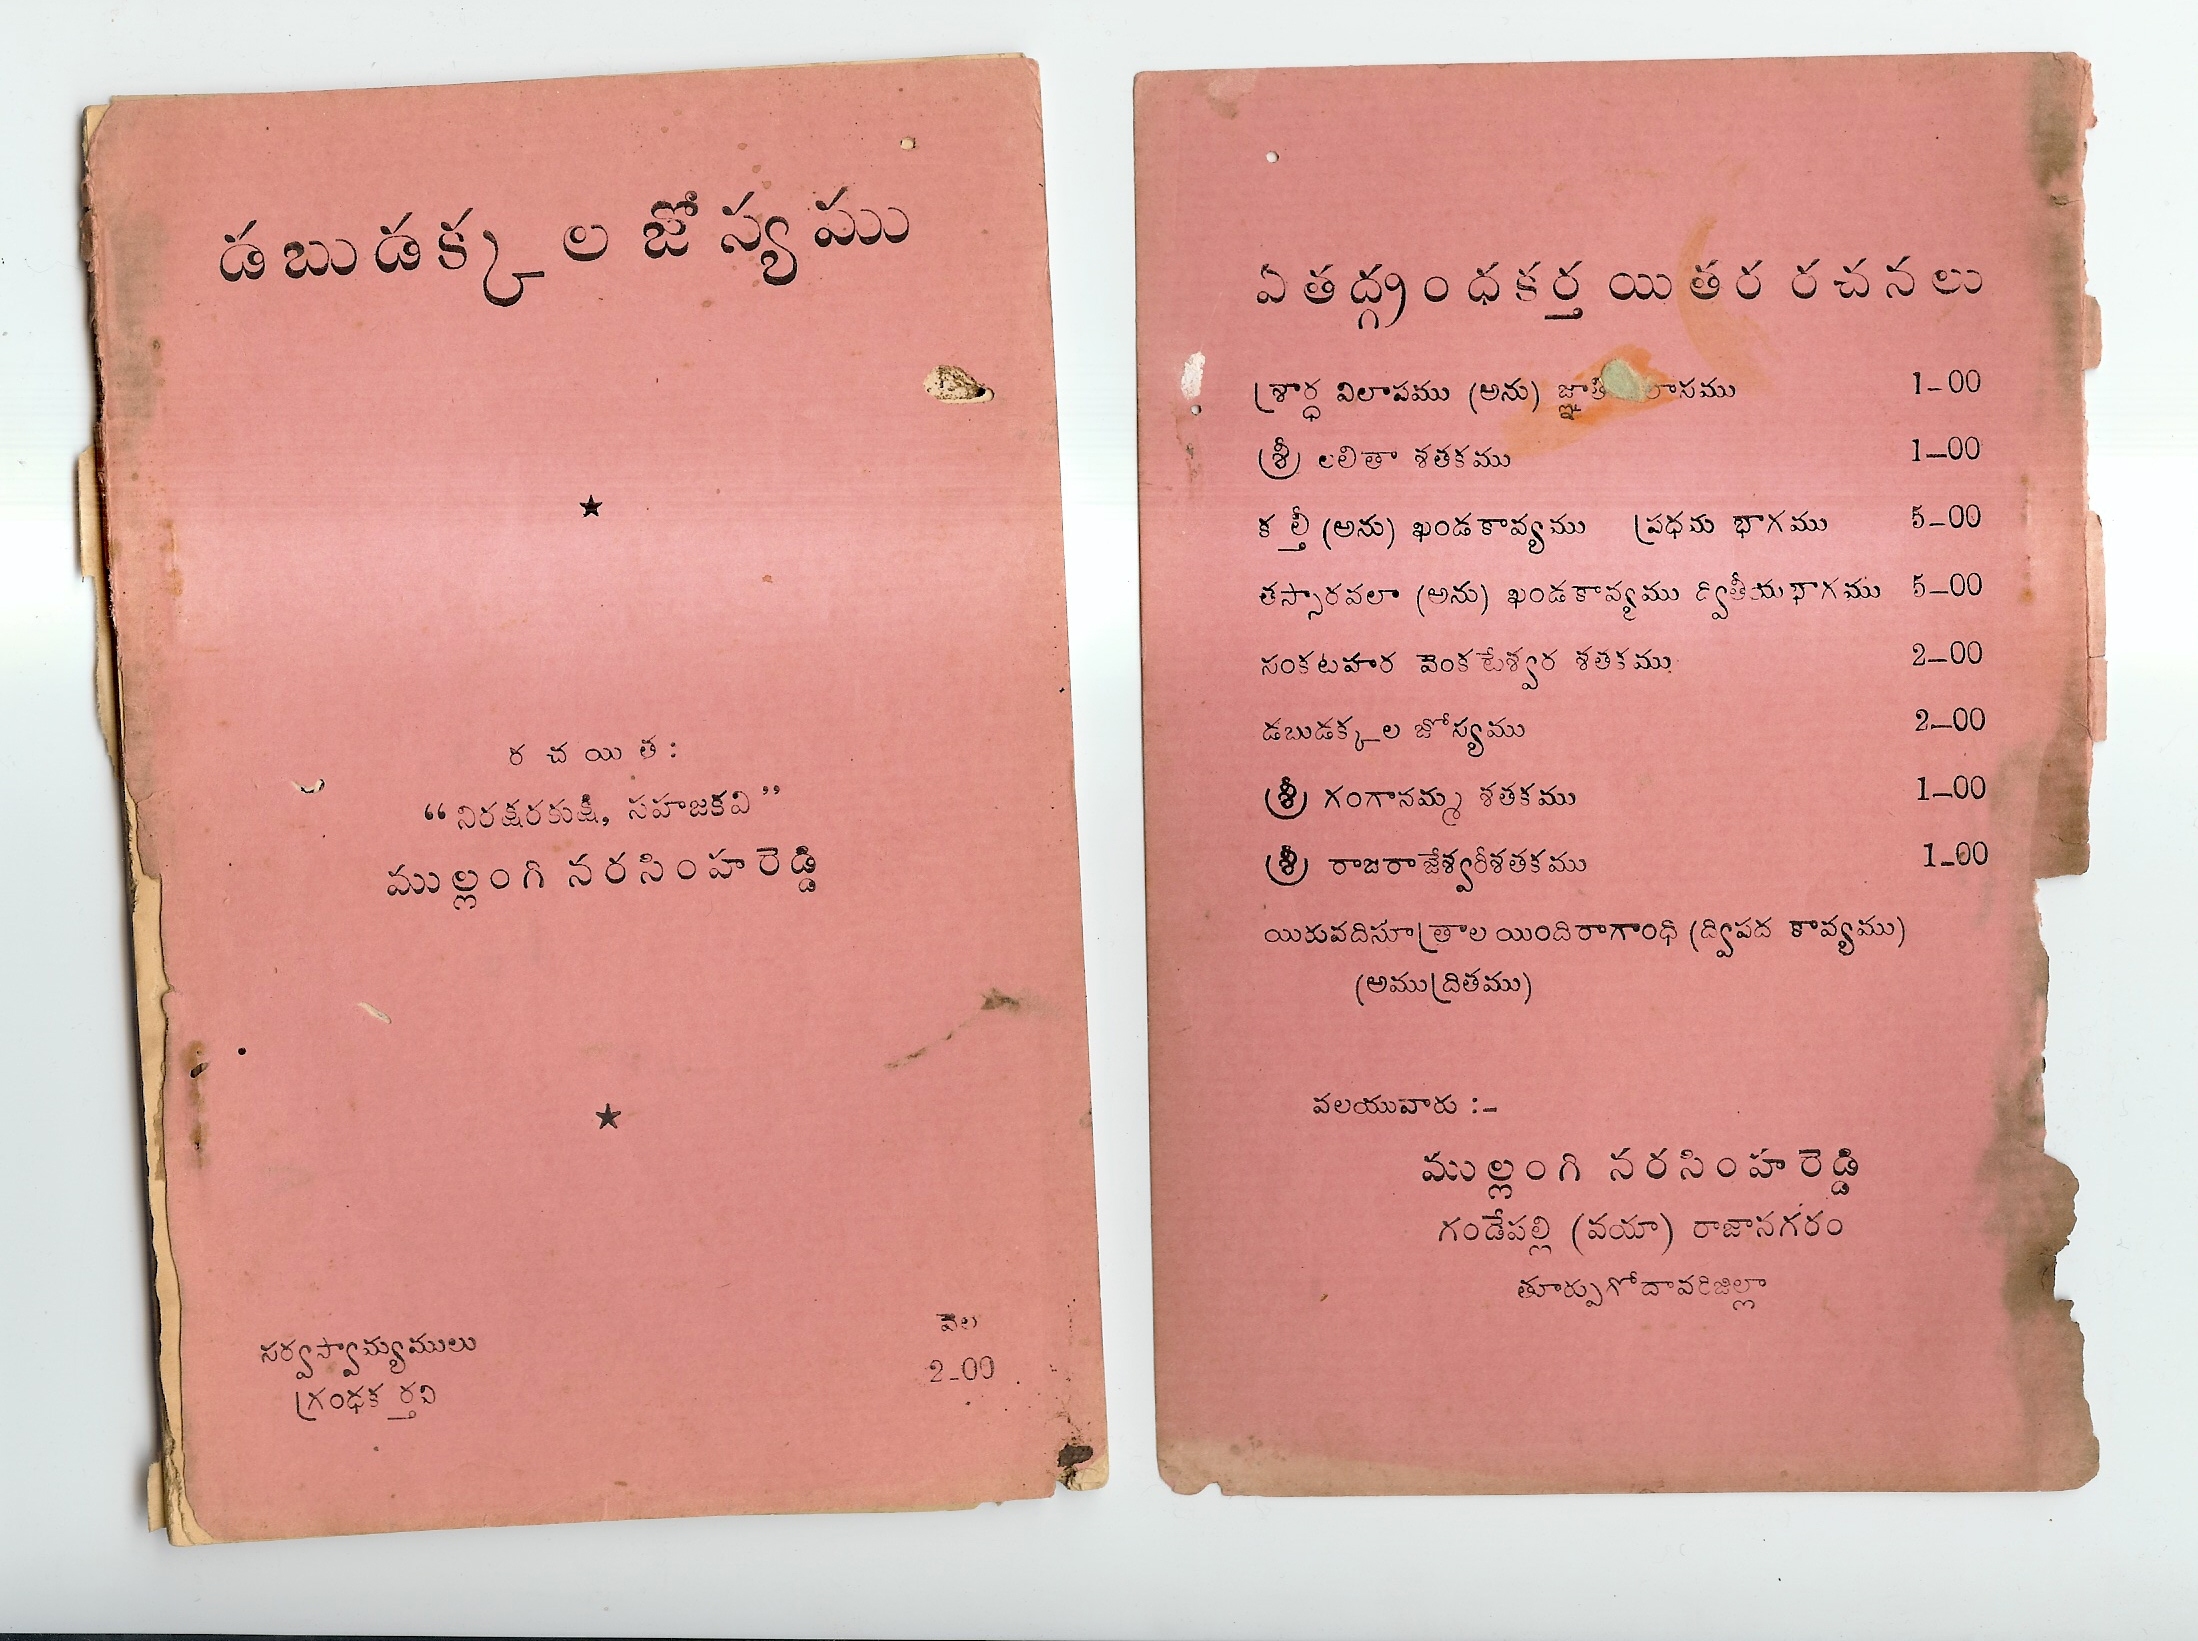 డబుడక్కల జోస్యము
★
రచయిత:
“నిరక్షరకుక్షి, సహజకవి”
ముల్లంగి నరసింహరెడ్డి
★
సర్వస్వామ్యములు
గ్రంధకర్తవి
వెల
2-00
ఏతద్గ్రంధకర్త యితర రచనలు
శ్రార్ధ విలాపము (అను) 1-00
శ్రీ లలితా శతకము 1-00
కల్తీ (అను) ఖండకావ్యము ప్రధమ భాగము 5-00
తస్సారవలా (అను) ఖండకావ్యము ద్వితీయభాగము 5-00
సంకటహర వెంకటేశ్వర శతకము 2-00
డబుడక్కల జోస్యము 2-00
శ్రీ గంగానమ్మ శతకము 1-00
శ్రీ రాజరాజేశ్వరీశతకము 1-00
యిరువదిసూత్రాల యిందిరాగాంధి (ద్విపద కావ్యము)
(అముద్రితము)
వలయువారు :-
ముల్లంగి నరసింహరెడ్డి
గండేపల్లి (వయా) రాజానగరం
తూర్పుగోదావరిజిల్లా